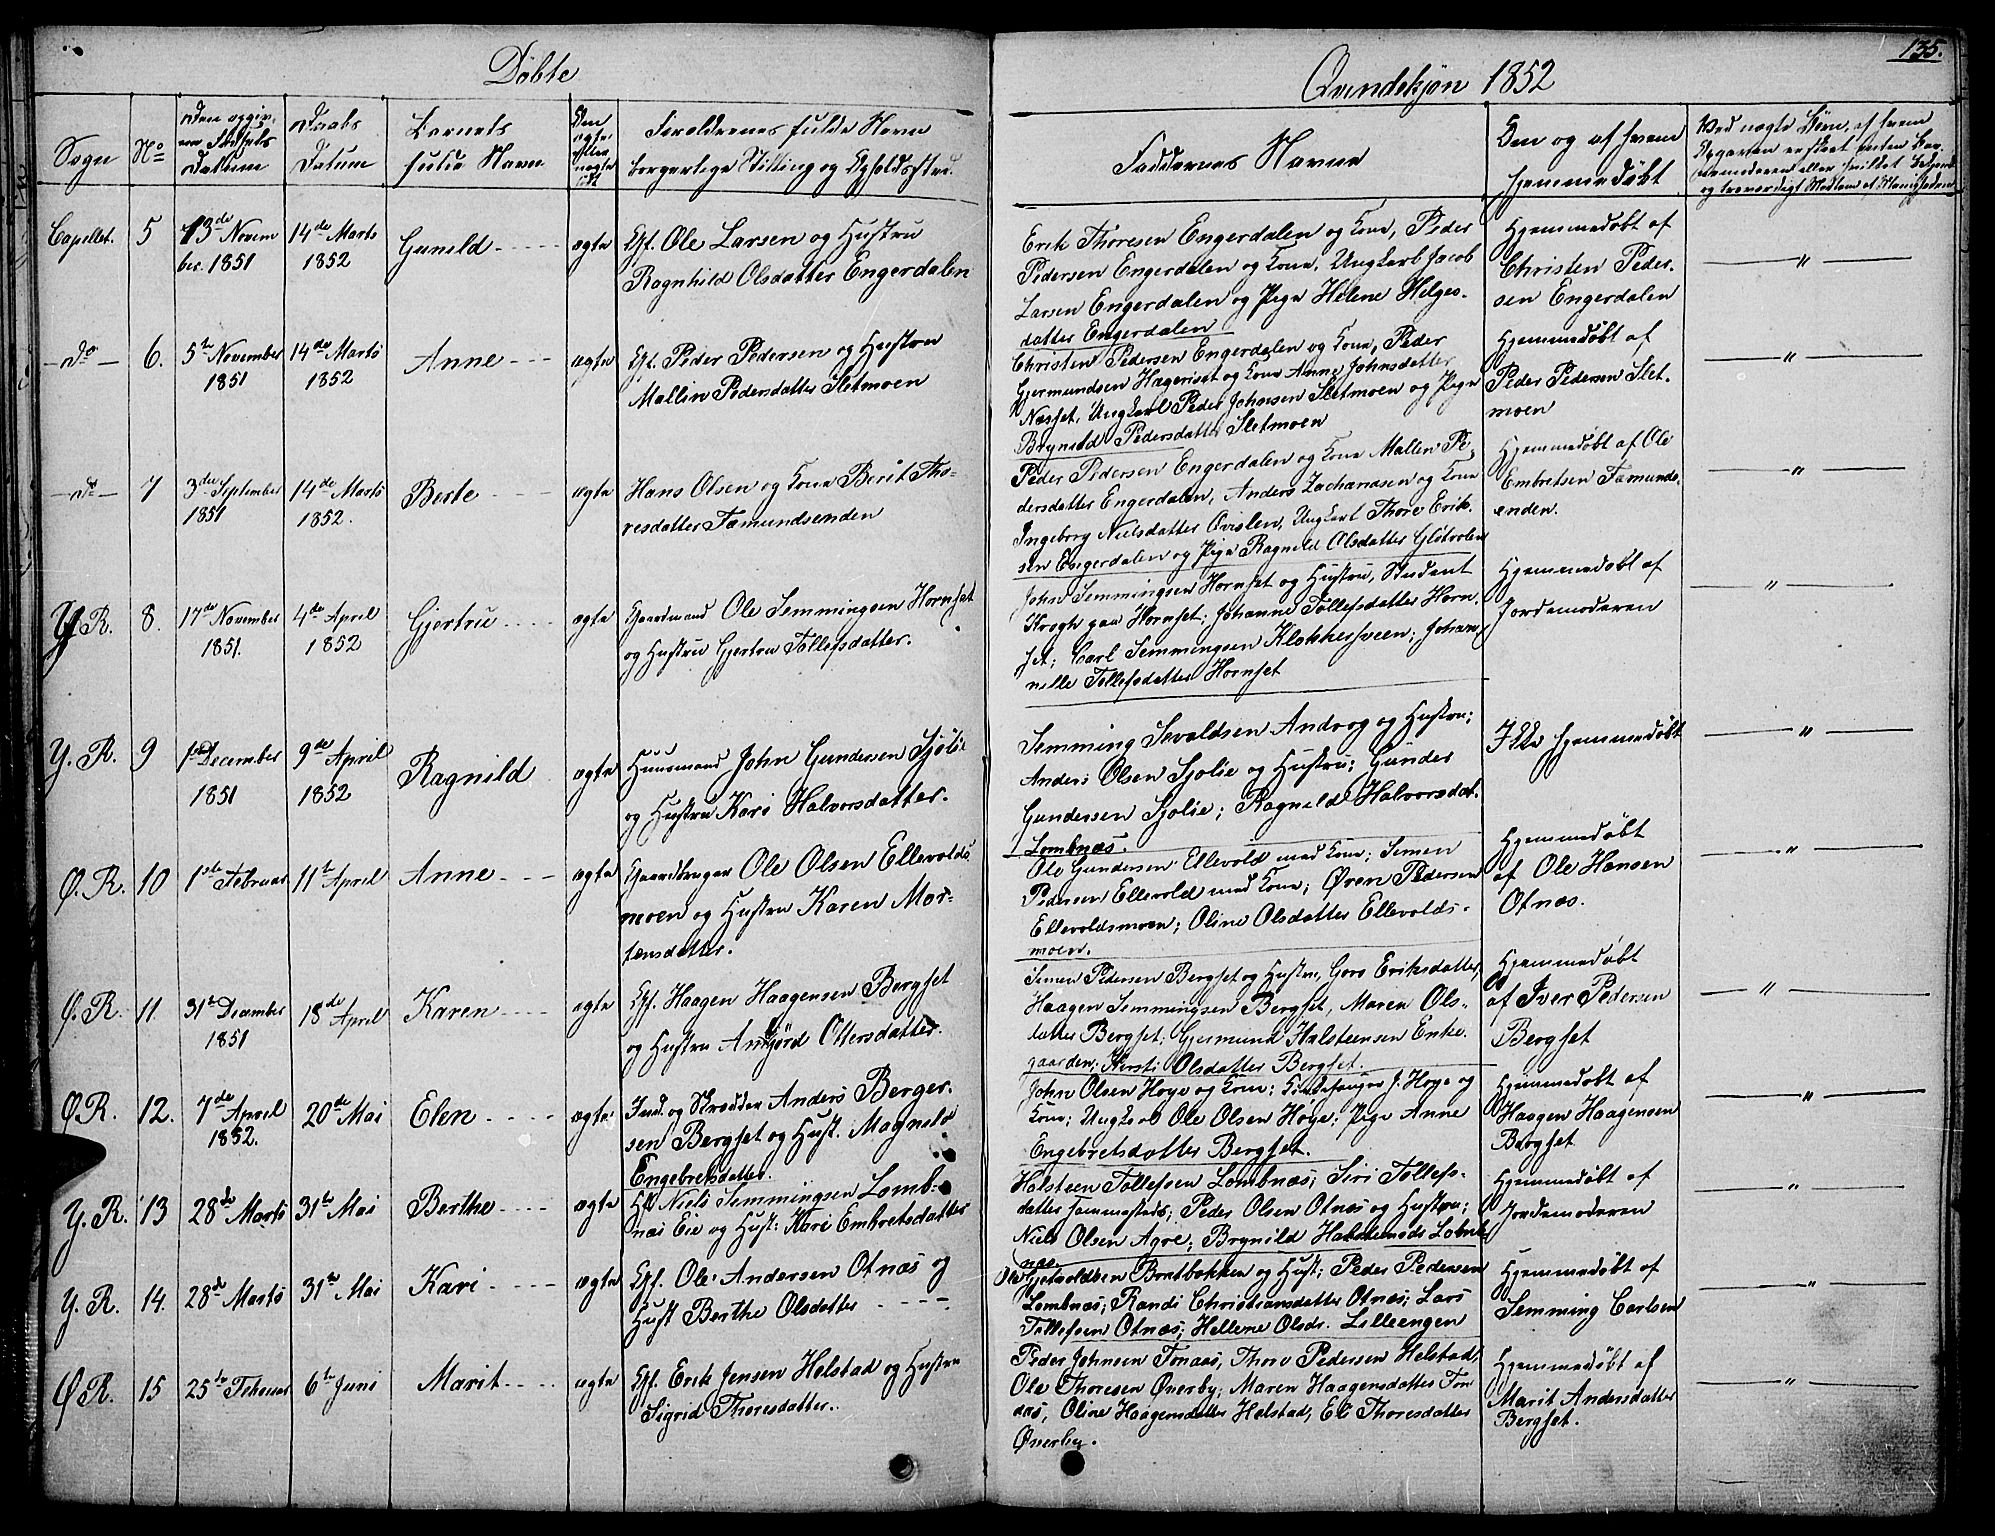 135.
Döbte
Qvindekjön 1852
Sogn
No
Den opgivne Födsels Datum
Daabs Datum
Barnets fulde Navn
Den ægte eller uægte födt
Forældrenes fulde Navn borgerlige Stilling og Opholdssted.
Faddernes Navne
Om og af hvem hjemmedöbt
Capellet.
5
13de Novem
ber. 1851
14de Marts
1852
Gunild
ægte
Gf. Ole Larsen og Hustru
Ragnhild Olsdatter Engerdalen
Erik Thoresen Engerdalen og Kone, Peder
Pedersen Engerdalen og Kone, Ungkarl Jacob
Larsen Engerdalen og Pige Helene Helges-
datter Engerdalen
Hjemmedöbt af
Christen Peder-
sen Engerdalen
—"—
—do—
6.
5te November
1851
14de Marts
1852
Anne
ægte
Gf. Peder Pedersen og Hustru
Mallin Pedersdatter Sletmoen
Christen Pedersen Engerdalen og Kone, Peder
Gjermundsen Hageriset og Kone Anne Johnsdatter
Næsset, Ungkarl Peder Johnsen Sletmoen og Pige
Brynild Pedersdatter Sletmoen
Hjemmedöbt af
Peder Pedersen Slet-
moen
—"—
—do—
7
3die September
1851
14de Marts
1852.
Berte
ægte
Hans Olsen og Kone Berit Tho-
resdatter Fæmundsenden
Peder Pedersen Engerdalen og Kone Mallen Pe-
dersdatter Engerdalen, Anders Zachariasen og Kone
Ingeborg Nielsdatter Qvislen, Ungkarl Thore Erik-
sen Engerdalen og Pige Ragnild Olsdatter Glötvolen
Hjemmedöbt af Ole
Embretsen Fæmunds-
enden.
—"—
Y. R.
8.
17de November
1851.
4de April
1852
Gjertru
ægte
Gaardmand Ole Semmingsen Hornset
og Hustru Gjertru Tollefsdatter.
John Semmingsen Hornset og Hustru, Student
Krogh paa Hornset; Johanne Tollefsdatter Horn-
set; Carl Semmingsen Klokkersveen; Johan-
nille Tollefsdatter Hornset
Hjemmedöbt af
Jordemoderen
—"—
Y. R.
9
1ste December
1851
9de April
1852
Ragnild
ægte
Huusmand John Gundersen Sjölie
og Hustru Kari Halvorsdatter.
Semming Sevaldsen Andvog og Hustru;
Anders Olsen Sjolie og Hustru; Gunder
Gundersen Sjolie; Ragnild Halvorsdat.
Lombnæs.
Ikke hjemmedöbt
—"—
Ø. R.
10
1ste Februar
11te April
Anne
ægte
Gaardbruger Ole Olsen Ellevolds
moen og Hustru Karen Mor-
tensdatter.
Ole Gundersen Ellevold med Kone; Simen
Pedersen Ellevold med Kone; Øven Pedersen
Ellevoldsmoen; Oline Olsdatter Ellevolds-
moen.
Hjemmedöbt
af Ole Hansen
Otnæs.
—"—
Ø. R.
11
31te December
1851
18de April
Karen
ægte
Gf. Haagen Haagensen Bergset
og Hustru Ambjörd Ottersdatter.
Simen Pedersen Bergset og Hustru, Goro Eriksdatter,
Haagen Semmingsen Bergset, Maren Ols-
datter Bergset; Gjermund Halsteensen Enke-
gaarden; Kersti Olsdatter Bergset.
Hjemmedöbt
af Iver Pedersen
Bergset
—"—
Ø. R.
12.
7de April
1852.
20de Mai
Elen
ægte
Ind. og Skrædder Anders Berger-
sen Bergset og Hust. Magnild
Engebretsdatter.
John Olsen Hoye og Kone; Kirkesanger J. Hoye og
Kone; Ungkarl Ole Olsen Höye; Pige Anne
Engebretsdatter Bergset.
Hjemmedöbt af
Haagen Haagensen
Bergset
—"—
Y. R.
13
28de Marts
31te Mai
Berthe
ægte
Niels Semmingsen Lomb-
næs Eie og Hust: Kari Embretsdatter
Halsteen Tollefsen Lombnæs; Siri Tollefs-
datter sammesteds; Peder Olsen Otnæs og Hustru;
Niels Olsen Agre; Brynild Halsteensd. Lomb-
næs.
Hjemmedöbt af
Jordemoderen
—"—
Y. R.
14.
28de Marts
31te Mai
Kari
ægte
Gf. Ole Andersen Otnæs og
Hust Berthe Olsdatter
Ole Gjetvoldsen Bratbakken og Hust; Peder Pedersen
Lombnæs; Randi Christiansdatter Otnæs; Lars
Tollefsen Otnæs; Hellene Olsdr. Lilleengen
Hjemmedöbt af
Semming Carlsen
—"—
Ø R.
15
25de Februar
6te Juni
Marit
ægte
Gf. Erik Jensen Helstad og Hustru
Sigrid Thoresdatter.
Peder Johnsen Fonaas, Thore Pedersen Helstad,
Ole Thoresen Øverby; Maren Haagensdatter Fon
aas, Oline Haagensdatter Helstad, Eli Thoresdatter
Øverby.
Hjemmedöbt af
Marit Andersdatter
Bergset.
—"—